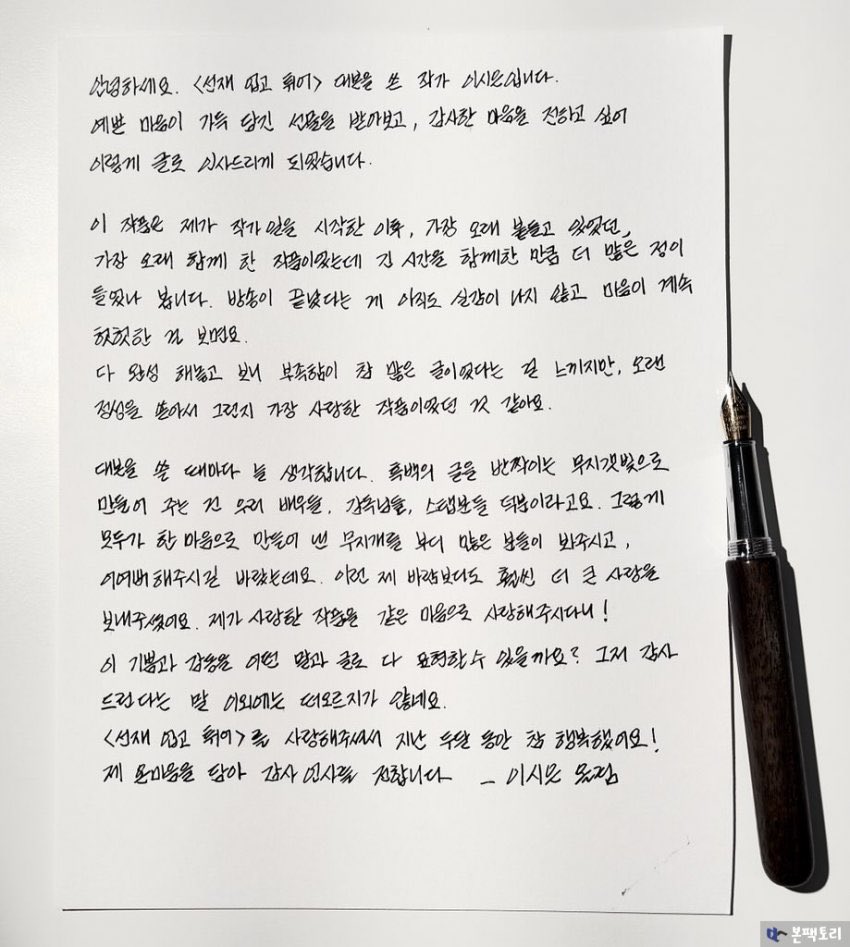 안녕하세요. <선재 업고 튀어> 대본을 쓴 작가 이시은입니다.
예쁜 마음이 가득 담긴 선물을 받아보고, 감사한 마음을 전하고 싶어
이렇게 글로 인사드리게 되었습니다.
이 작품은 제가 작가 일을 시작한 이후, 가장 오래 붙들고 있었던,
가장 오래 함께 한 작품이었는데 긴 시간을 함께한 만큼 더 많은 정이
들었나 봅니다. 방송이 끝났다는 게 아직도 실감이 나지 않고 마음이 계속
헛헛한 걸 보면요.
다 완성 해놓고 보니 부족함이 참 많은 글이었다는 걸 느끼지만, 오랜
정성을 쏟아서 그런지 가장 사랑한 작품이었던 것 같아요.
대본을 쓸 때마다 늘 생각합니다. 흑백의 글을 반짝이는 무지갯빛으로
만들어 주는 건 우리 배우들, 감독님들, 스탭분들 덕분이라고요. 그렇게
모두가 한 마음으로 만들어 낸 무지개를 부디 많은 분들이 봐주시고,
어여뻐해주시길 바랐는데요. 이런 제 바람보다도 훨씬 더 큰 사랑을
보내주셨어요. 제가 사랑한 작품을 같은 마음으로 사랑해주시다니!
이 기쁨과 감동을 어떤 말과 글로 다 표현할 수 있을까요? 그저 감사
드린다는 말 이외에는 떠오르지가 않네요.
<선재 업고 튀어>를 사랑해주셔서 지난 두달 동안 참 행복했어요!
제 온마음을 담아 감사 인사를 전합니다 _ 이시은 올림
본팩토리